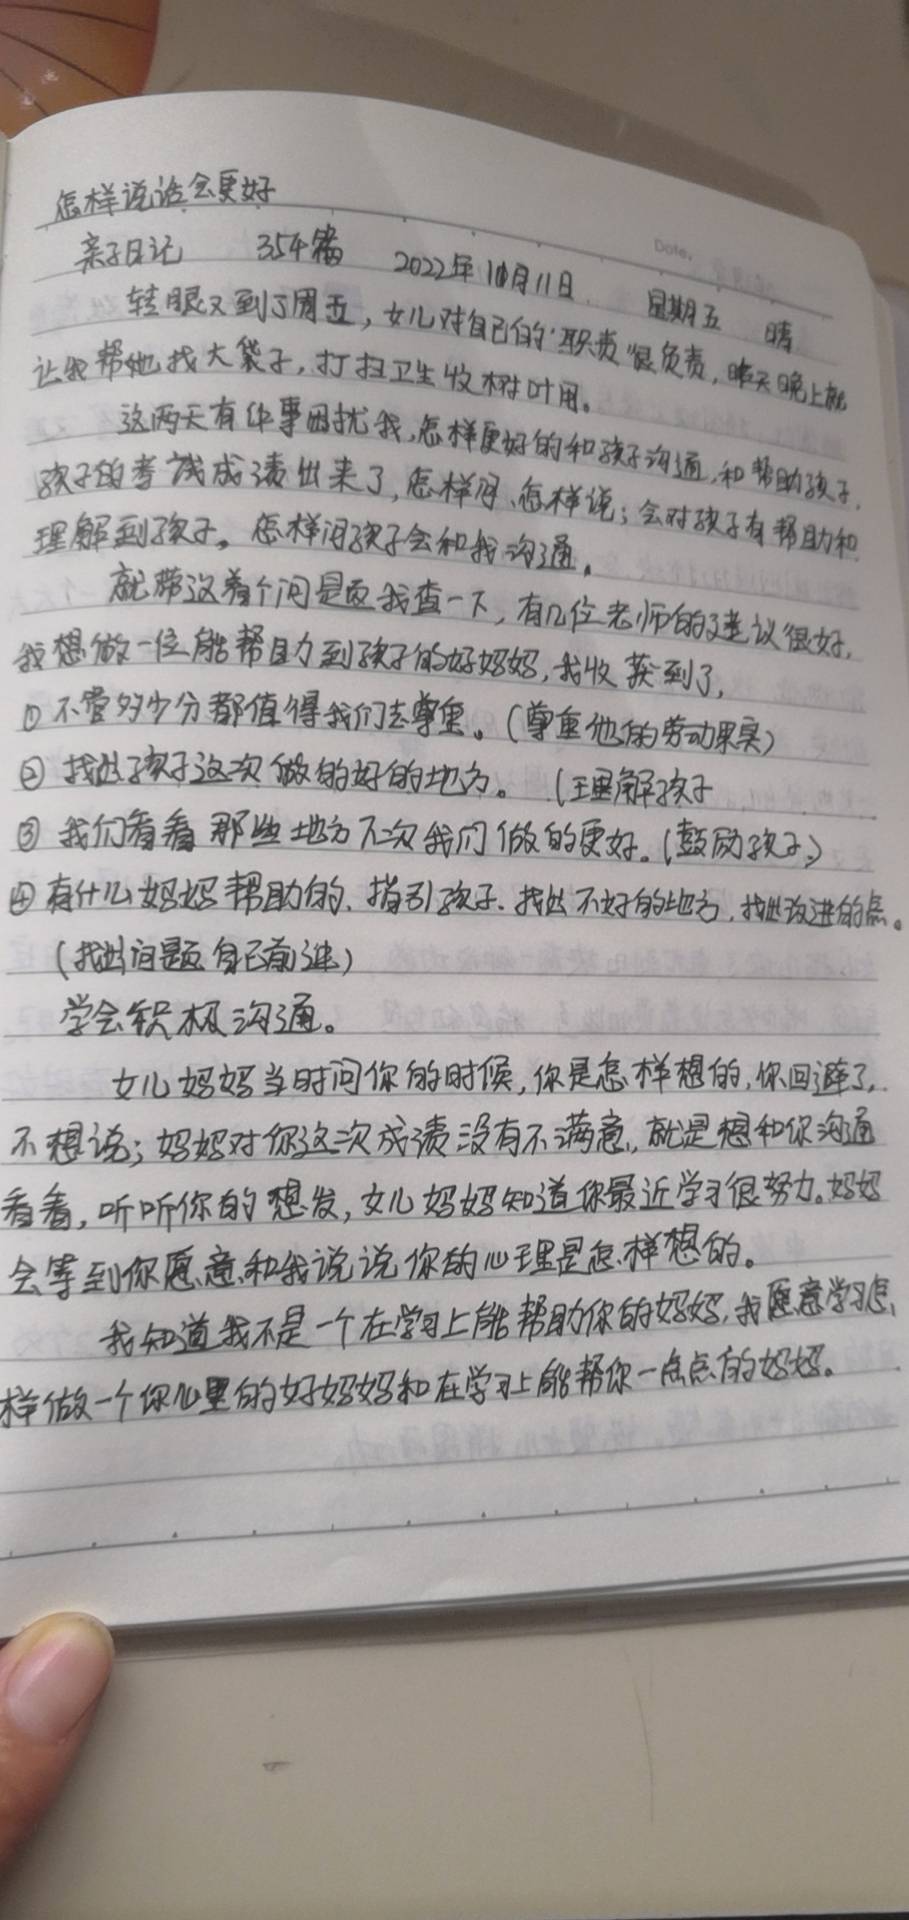 怎样说话会更好
Date.
亲子日记 354篇 2022年11月11日 星期五 晴
转眼又到了周五，女儿对自己的职责很负责，昨天晚上就
让我帮她找大袋子，打扫卫生收树叶用。
这两天有件事困扰我，怎样更好的和孩子沟通，和帮助孩子，
孩子的考试成绩出来了，怎样问、怎样说；会对孩子有帮助和
理解到孩子。怎样问孩子会和我沟通。
就带这着个问是页我查一下，有几位老师的建议很好，
我想做一位能帮助到孩子的好妈妈，我收获到了，
①不管多少分都值得我们去尊重。(尊重他的劳动果实)
②找出孩子这次做的好的地方。(理解孩子
③我们看看那些地方下次我们做的更好。(鼓励孩子)
④有什么妈妈帮助的、指引孩子、找出不好的地方，找出改进的点。
(找出问题自己前进)
学会积极沟通。
女儿妈妈当时问你的时候，你是怎样想的，你回避了，
不想说；妈妈对你这次成绩没有不满意，就是想和你沟通
看看，听听你的想发，女儿妈妈知道你最近学习很努力。妈妈
会等到你愿意和我说说你的心理是怎样想的。
我知道我不是一个在学习上能帮助你的妈妈，我愿意学习怎
样做一个你心里的好妈妈和在学习上能帮你一点点的妈妈。